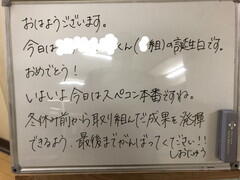 おはようございます。
今日は くん( 組)の誕生日です。
おめでとう！
いよいよ今日はスペコン本番ですね。
冬休み前から取り組んだ成果を発揮
できるよう、最後までがんばってください！！
しおじゅう